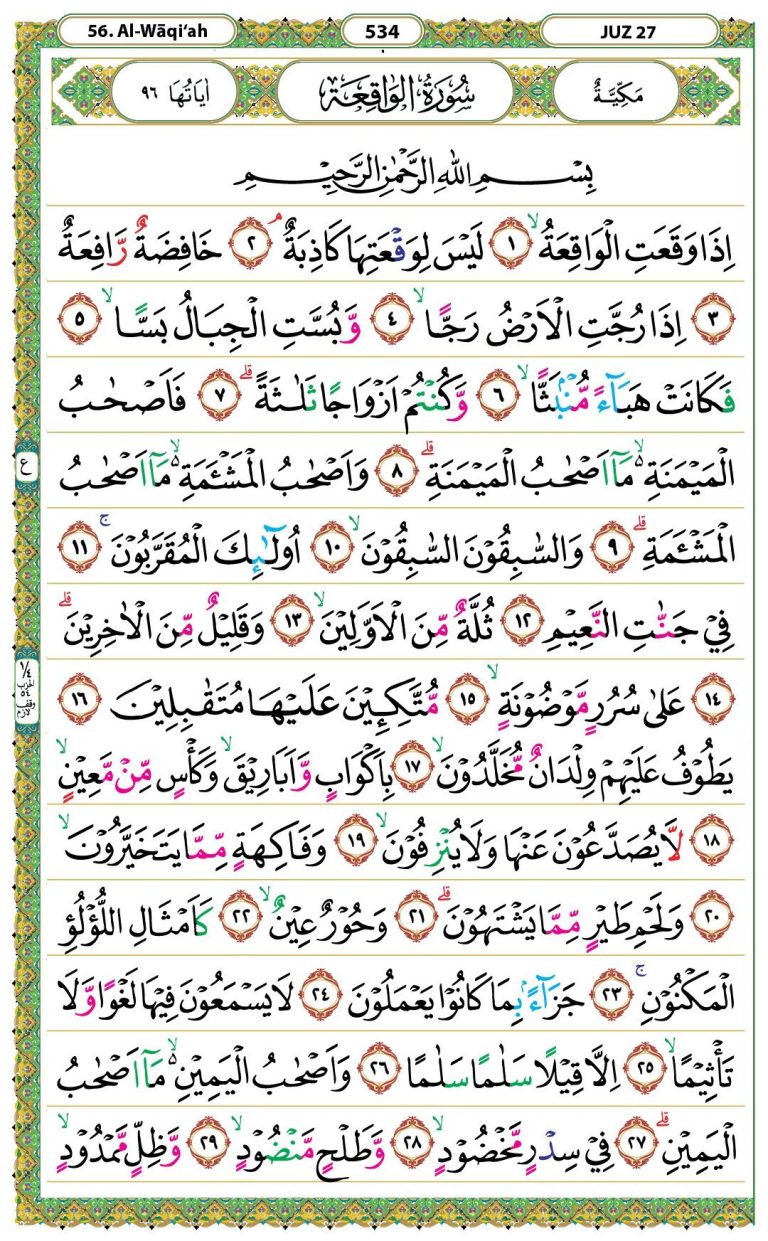 56. Al-Wāqi‘ah 534 JUZ 27
مَكِّيَّةٌ سُوْرَةُ الْوَاقِعَةِ اٰيَاتُهَا ٩٦
بِسْمِ اللّٰهِ الرَّحْمٰنِ الرَّحِيْمِ
اِذَا وَقَعَتِ الْوَاقِعَةُۙ ١ لَيْسَ لِوَقْعَتِهَا كَاذِبَةٌۘ ٢ خَافِضَةٌ رَّافِعَةٌ
٣ اِذَا رُجَّتِ الْاَرْضُ رَجًّاۙ ٤ وَّبُسَّتِ الْجِبَالُ بَسًّاۙ ٥
فَكَانَتْ هَبَاۤءً مُّنْۢبَثًّاۙ ٦ وَّكُنْتُمْ اَزْوَاجًا ثَلٰثَةًۗ ٧ فَاَصْحٰبُ
الْمَيْمَنَةِ ەۙ مَآ اَصْحٰبُ الْمَيْمَنَةِۗ ٨ وَاَصْحٰبُ الْمَشْـَٔمَةِ ەۙ مَآ اَصْحٰبُ
الْمَشْـَٔمَةِۗ ٩ وَالسّٰبِقُوْنَ السّٰبِقُوْنَۙ ١٠ اُولٰۤىِٕكَ الْمُقَرَّبُوْنَۚ ١١
فِيْ جَنّٰتِ النَّعِيْمِ ١٢ ثُلَّةٌ مِّنَ الْاَوَّلِيْنَۙ ١٣ وَقَلِيْلٌ مِّنَ الْاٰخِرِيْنَۗ
١٤ عَلٰى سُرُرٍ مَّوْضُوْنَةٍۙ ١٥ مُّتَّكِـِٕيْنَ عَلَيْهَا مُتَقٰبِلِيْنَ ١٦
يَطُوْفُ عَلَيْهِمْ وِلْدَانٌ مُّخَلَّدُوْنَۙ ١٧ بِاَكْوَابٍ وَّاَبَارِيْقَۙ وَكَأْسٍ مِّنْ مَّعِيْنٍۙ
١٨ لَّا يُصَدَّعُوْنَ عَنْهَا وَلَا يُنْزِفُوْنَۙ ١٩ وَفَاكِهَةٍ مِّمَّا يَتَخَيَّرُوْنَۙ
٢٠ وَلَحْمِ طَيْرٍ مِّمَّا يَشْتَهُوْنَۗ ٢١ وَحُوْرٌ عِيْنٌۙ ٢٢ كَاَمْثَالِ اللُّؤْلُؤِ
الْمَكْنُوْنِۚ ٢٣ جَزَاۤءًۢ بِمَا كَانُوْا يَعْمَلُوْنَ ٢٤ لَا يَسْمَعُوْنَ فِيْهَا لَغْوًا وَّلَا
تَأْثِيْمًاۙ ٢٥ اِلَّا قِيْلًا سَلٰمًا سَلٰمًا ٢٦ وَاَصْحٰبُ الْيَمِيْنِ ەۙ مَآ اَصْحٰبُ
الْيَمِيْنِۗ ٢٧ فِيْ سِدْرٍ مَّخْضُوْدٍۙ ٢٨ وَّطَلْحٍ مَّنْضُوْدٍۙ ٢٩ وَّظِلٍّ مَّمْدُوْدٍۙ
ع
١/٤
الحزب
٥٤
وقف
لازم